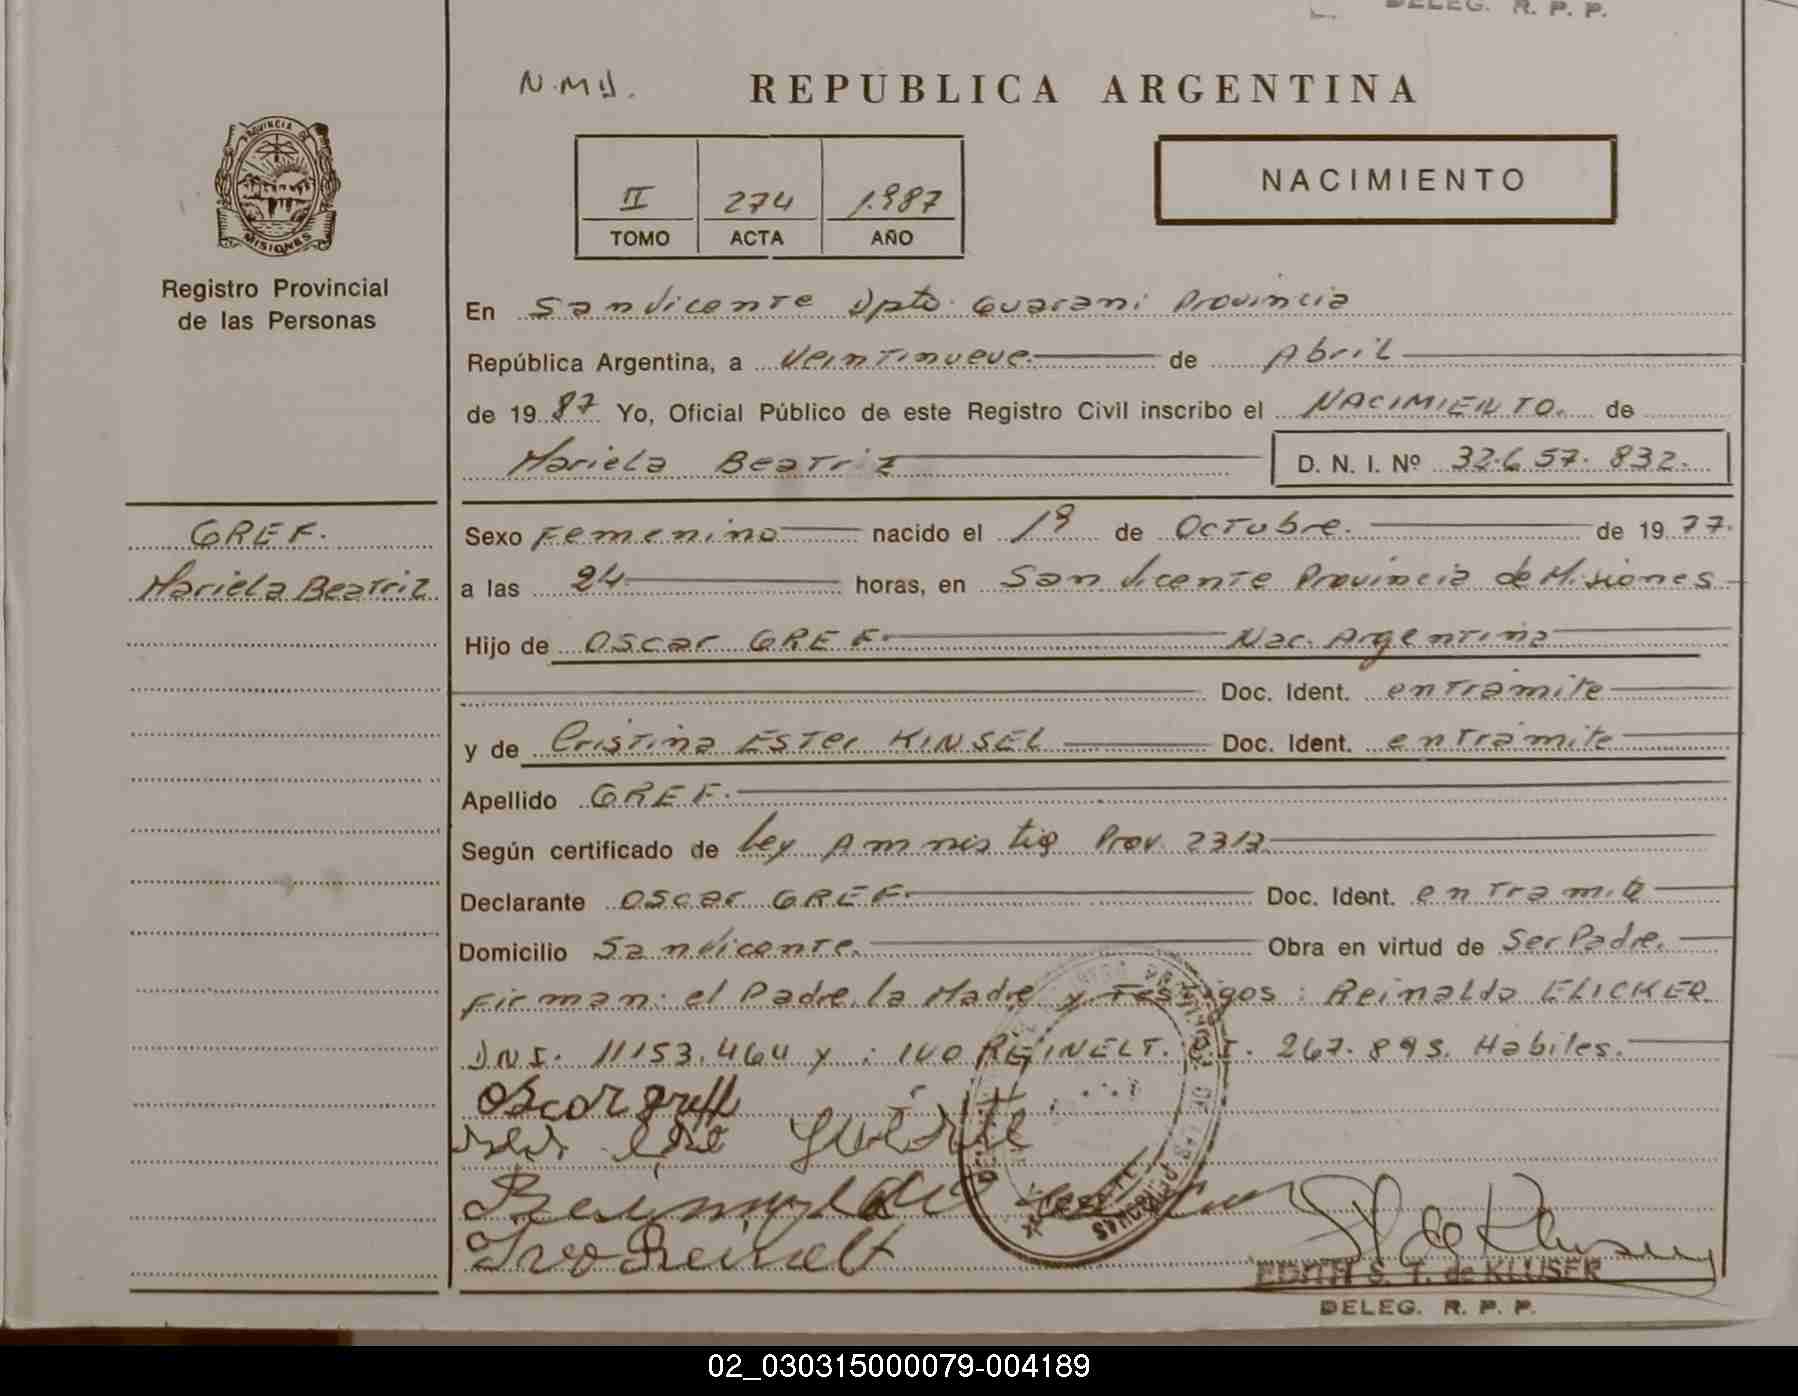 DELEG. R. P. P.
N.M.Y.
REPUBLICA ARGENTINA
PROVINCIA DE
MISIONES
Registro Provincial
de las Personas
II 274 1.987
TOMO ACTA AÑO
NACIMIENTO
En San Vicente Dpto. Guarani Provincia
República Argentina, a Veintinueve de Abril
de 19 87 Yo, Oficial Público de este Registro Civil inscribo el NACIMIENTO. de
Mariela Beatriz D. N. I. Nº 32.657.832.
GREF.
Mariela Beatriz
Sexo Femenino nacido el 19 de Octubre. de 19 77.
a las 24 horas, en San Vicente Provincia de Misiones
Hijo de Oscar GREF. Nac. Argentina
Doc. Ident. en tramite
y de Cristina Ester KINSEL Doc. Ident. en tramite
Apellido GREF.
Según certificado de Ley Amnistia Prov. 2313
Declarante Oscar GREF. Doc. Ident. en tramite
Domicilio San Vicente. Obra en virtud de Ser Padre.
Firman: el Padre, la Madre y Testigos: Reinaldo ELICKER
DNI. 11153.464 y : IVO REINELT. C.I. 267.895. Habiles.
Oscar greff
Ivo Reinelt
EDITH S. T. de KLUSER
DELEG. R. P. P.
02_030315000079-004189